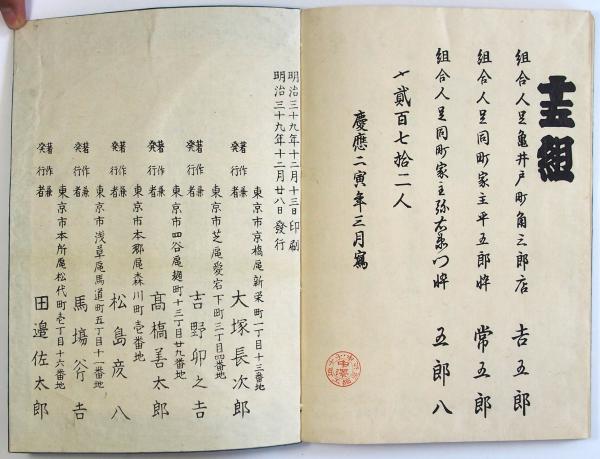 十五組
組合人足亀井戸町角三郎店 吉五郎
組合人足同町家主平五郎悴 常五郎
組合人足同町家主弥右衛門悴 五郎八
〆貳百七拾二人
慶應二寅年三月寫
明治三十九年十二月十三日印刷
明治三十九年十二月廿八日發行
東京市京橋區新栄町一丁目十三番地
著作兼発行者 大塚長次郎
東京市芝區愛宕下町三丁目四番地
著作兼発行者 吉野卯之吉
東京市四谷區麹町十三丁目廿九番地
著作兼発行者 髙橋善太郎
東京市本郷區森川町壱番地
著作兼発行者 松島彦八
東京市浅草區馬道町五丁目十一番地
著作兼発行者 馬場谷吉
東京市本所區松代町壱丁目十六番地
著作兼発行者 田邉佐太郎